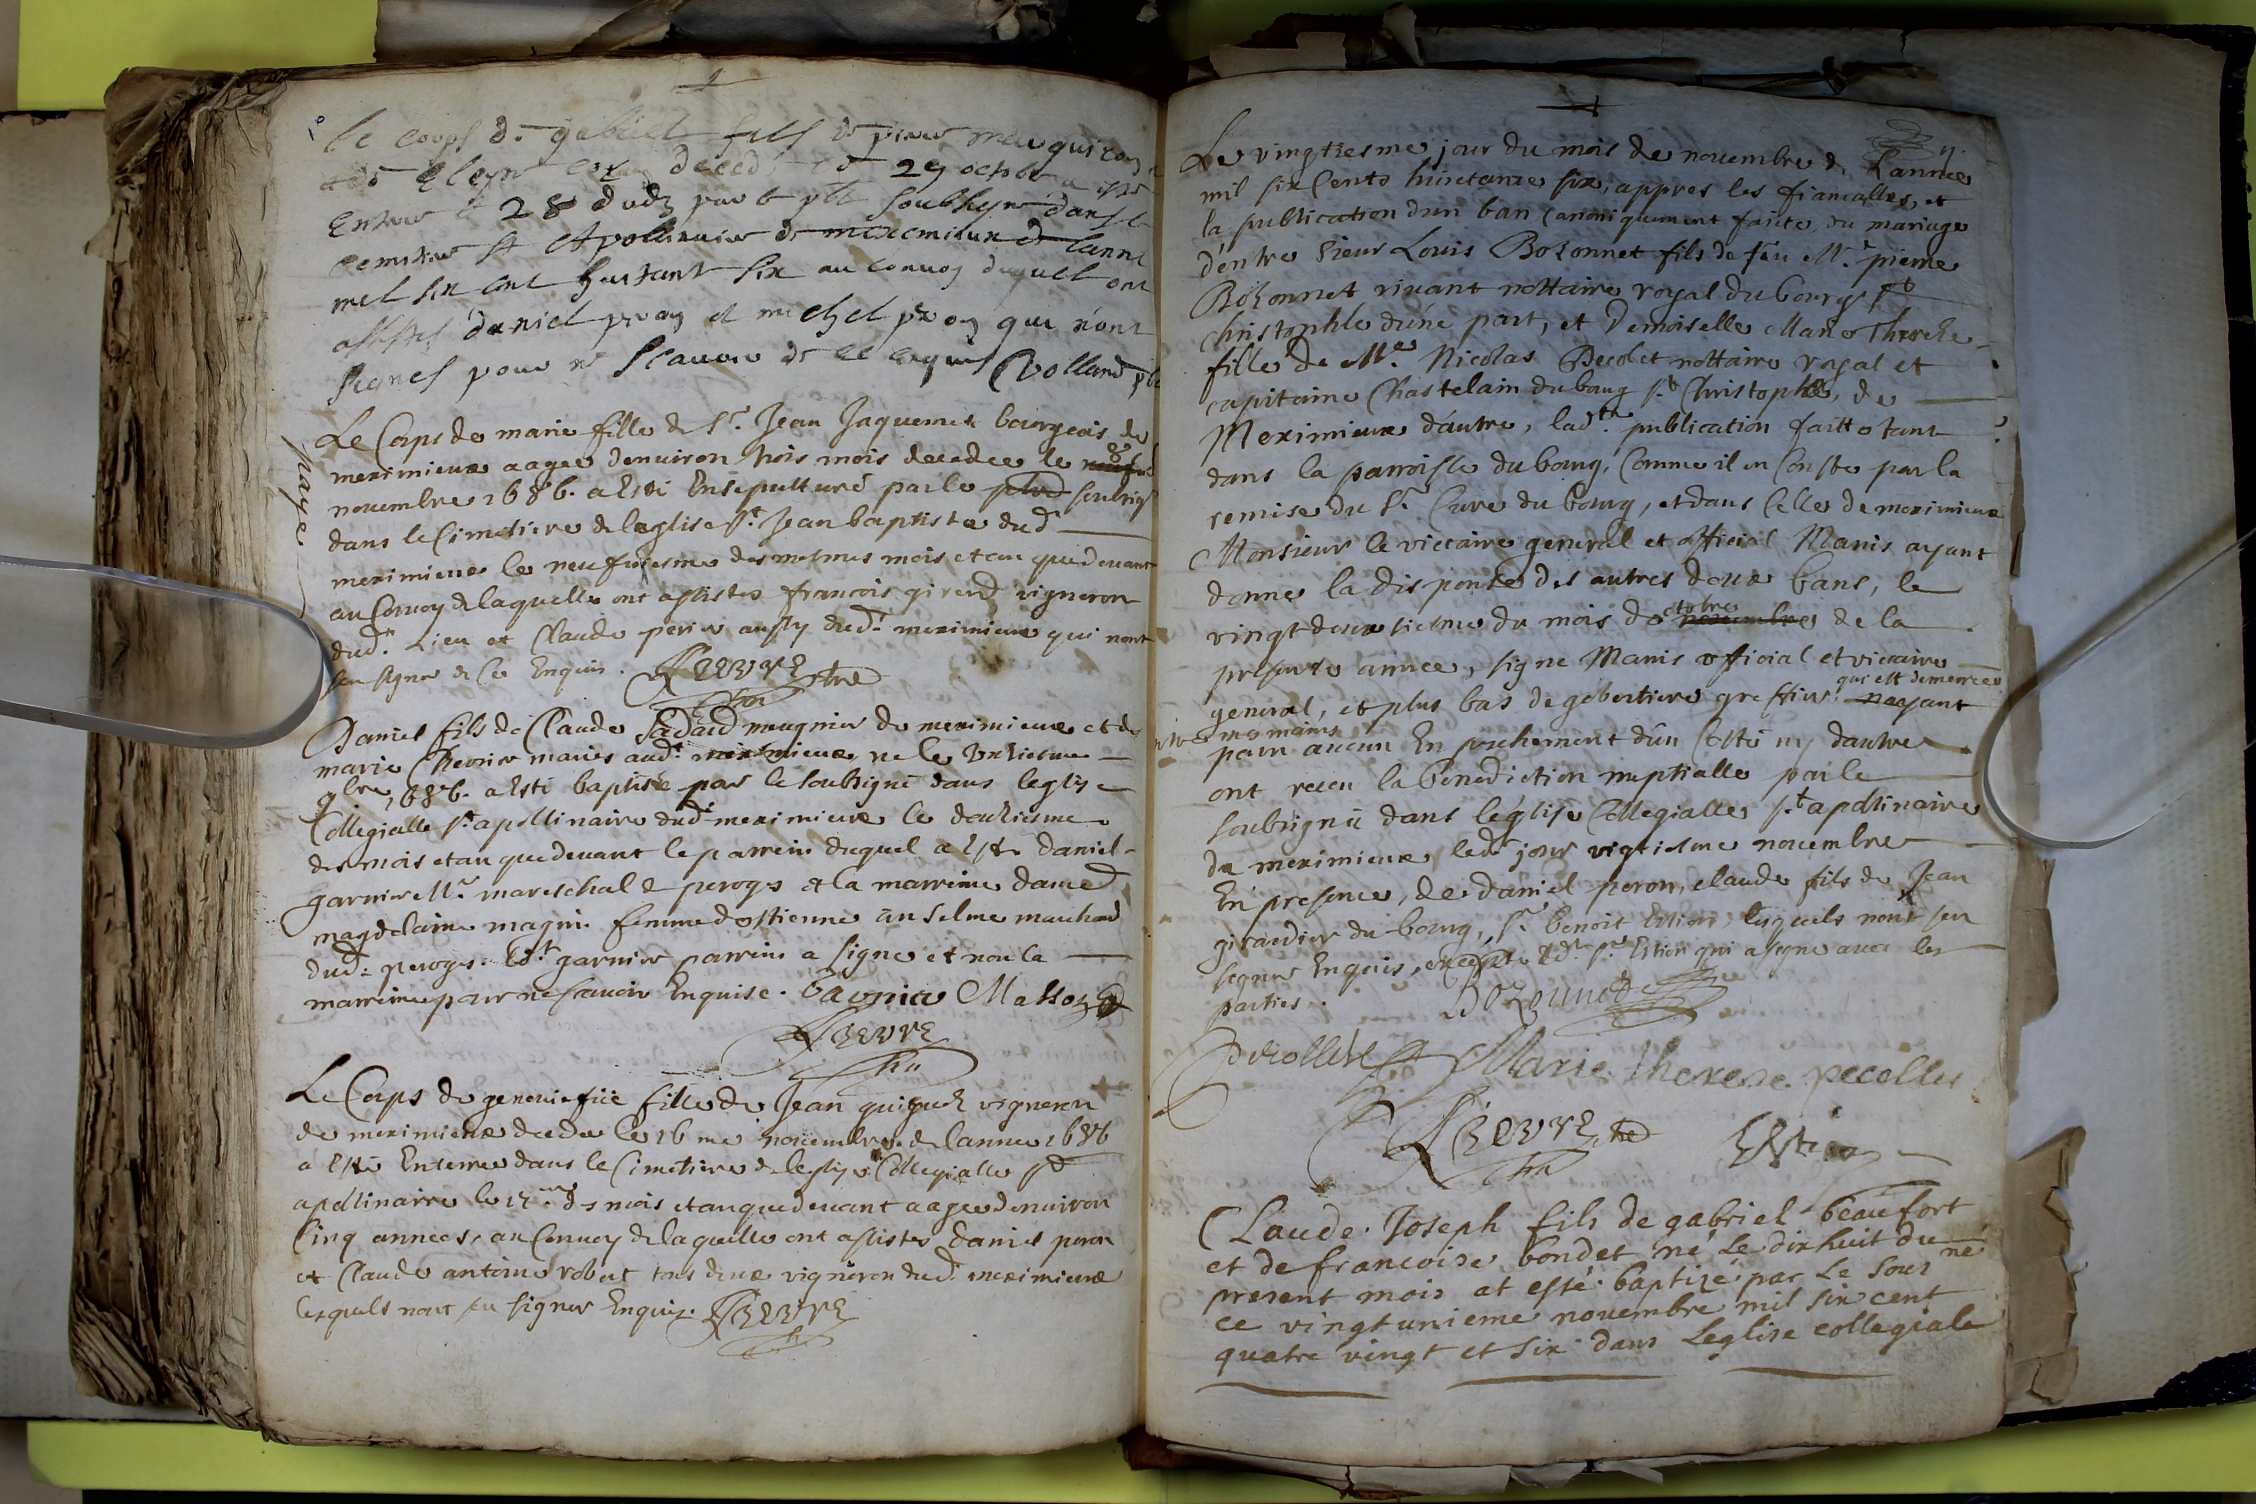 Le corps de gabriel fils de pierre
decede le 29 octobre a este
Enterre le 28 dud par le pbr soubsigne dans le
cemitiere St Apollinaire de meximieux de lanne
mil six cent huictant six au convoy duquel ont
assistes daniel peron et michel peron qui n'ont
signes pour ne scavoir de ce enquis Volland pbr
paye
Le Corps de marie fille de Sr. Jean Jaquemet bourgeois de
meximieux aagee denviron trois mois decedee le
novembre 1686. a Esté Ensepulturé par le soubsigné
dans le Cimetiere de leglise St. Jean baptiste dud.
meximieux le neufviesme des mesmes mois et an que devant
au Convoy de laquelle ont assistes francois girerd vigneron
dud. Lieu et Claude perier aussy dud. meximieux qui n'ont
sceu signer de Ce Enquis.
Daniel fils de Claude meugnier de meximieux et de
marie Chevrier mariés aud. meximieux, ne le Unziesme
9bre, 1686. a Esté baptisé par le soubsigné dans leglise
Collegialle St. apollinaire dud. meximieux le douziesme
des mois et an que devant le parrein duquel a Esté daniel
garnier Mr. mareschal de peroges et la marreine dame
magdelaine magnin femme destienne anselme marchand
dud. peroges. led. garnier parrein a signe et non la
marreine pour ne scavoir Enquise. Garnier
Le Corps de geneviefve fille de Jean vigneron
de meximieux decedee le 16 me novembre de lannee 1686
a Esté Enterree dans le Cimetiere de leglise Collegialle St
apollinaire le 17me des mois et an que devant aagee denviron
Cinq annees, au Convoy de laquelle ont assistes daniel peron
et Claude antoine robert tous deux vigneron dud. meximieux
lesquels n'ont sceu signer Enquis.
Le vingtiesme jour du mois de novembre de Lannee
mil six Cents huictante six, appres les fiancalles, et
la publication d'un ban Canoniquement faite, du mariage
d'entre Sieur Louis Bozonnet fils de feu Mr. pierre
Bozonnet vivant nottaire royal du bourg St
Christophle d'une part, et Demoiselle Marie Therese
fille de Me. Nicolas Decolet nottaire royal et
capitaine Chastelain du bourg St. Christophle, de
Meximieux d'autre, lad.te publication faitte tant
dans la parroisse du bourg, Comme il en Conste par la
remise du Sr. Cure du bourg, et dans Celle de meximieux
Monsieur le viccaire general et official Manis ayant
donne la dispense des autres deux bans, le
vingt deuxsiesme du mois d'octobre de la
presente annee, signe Manis official et viccaire
general, et plus bas de gebertiere greffier. qui est demeuree
mes mains nayant
paru aucun Empeschement d'un Costé ny dautre
ont receu la benediction nuptialle par le
soubsigné dans léglise Collegialle St apollinaire
de meximieux, led. jour vigtiesme novembre
En presence, de daniel peron, claude fils de Jean
girardier du bourg, Sr. benoit Estion, lesquels n'ont sceu
signer Enquis, excepté led. Sr. Estion qui a signe avec les
parties. Bozonnet
Marie Therese pecollet
Estion
Claude Joseph fils de gabriel beaufort
et de francoise bondet né Le dixhuit du
present mois at esté baptizé par Le sous né
ce vingtunieme novembre mil six cent
quatre vingt et six dans Leglise collegiale